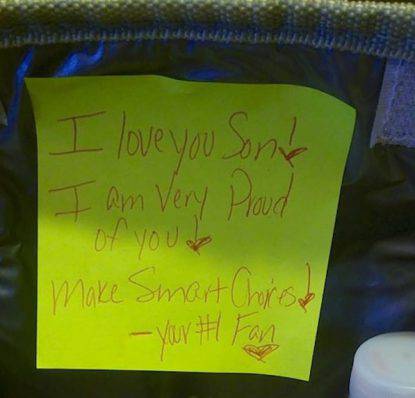 I love you Son!
I am Very Proud
of you!
Make Smart Choices!
- your #1 Fan